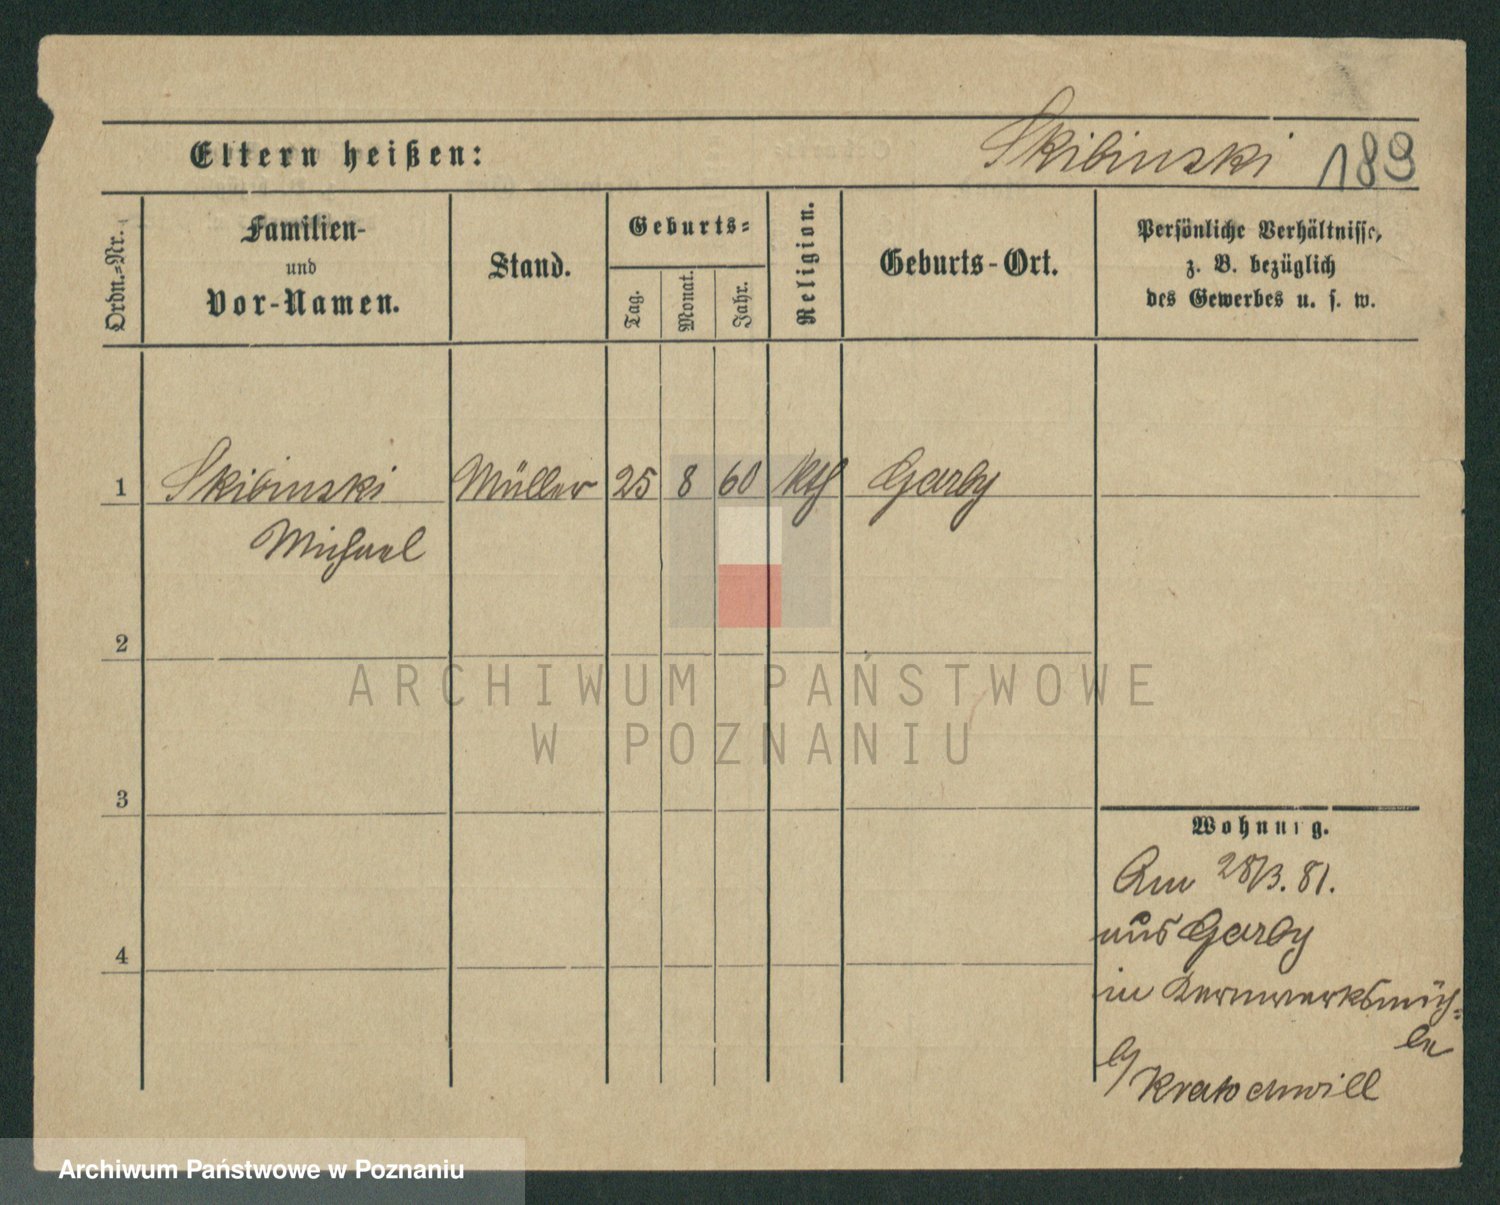 Skibinski 189
Eltern heißen:
Ordn.-Nr.
Familien-
und
Vor-Namen.
Stand.
Geburts-
Tag.
Monat.
Jahr.
Religion.
Geburts-Ort.
Persönliche Verhältnisse,
z. B. bezüglich
des Gewerbes u. s. w.
1 Skibinski Müller 25 8 60 kth Garby
Michael
2
ARCHIWUM PAŃSTWOWE
W POZNANIU
3
Wohnung.
Am 28/3. 81.
aus Garby
4
in Kernwerksmüh-
le
b/ Kratochwill
Archiwum Państwowe w Poznaniu